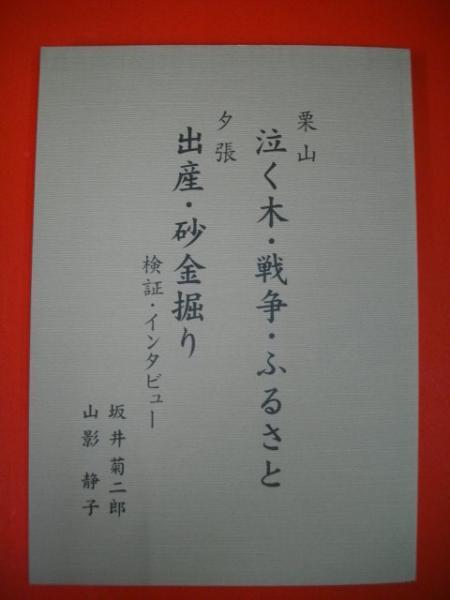 栗山
泣く木・戦争・ふるさと
夕張
出産・砂金掘り
検証・インタビュー
坂井菊二郎
山影静子